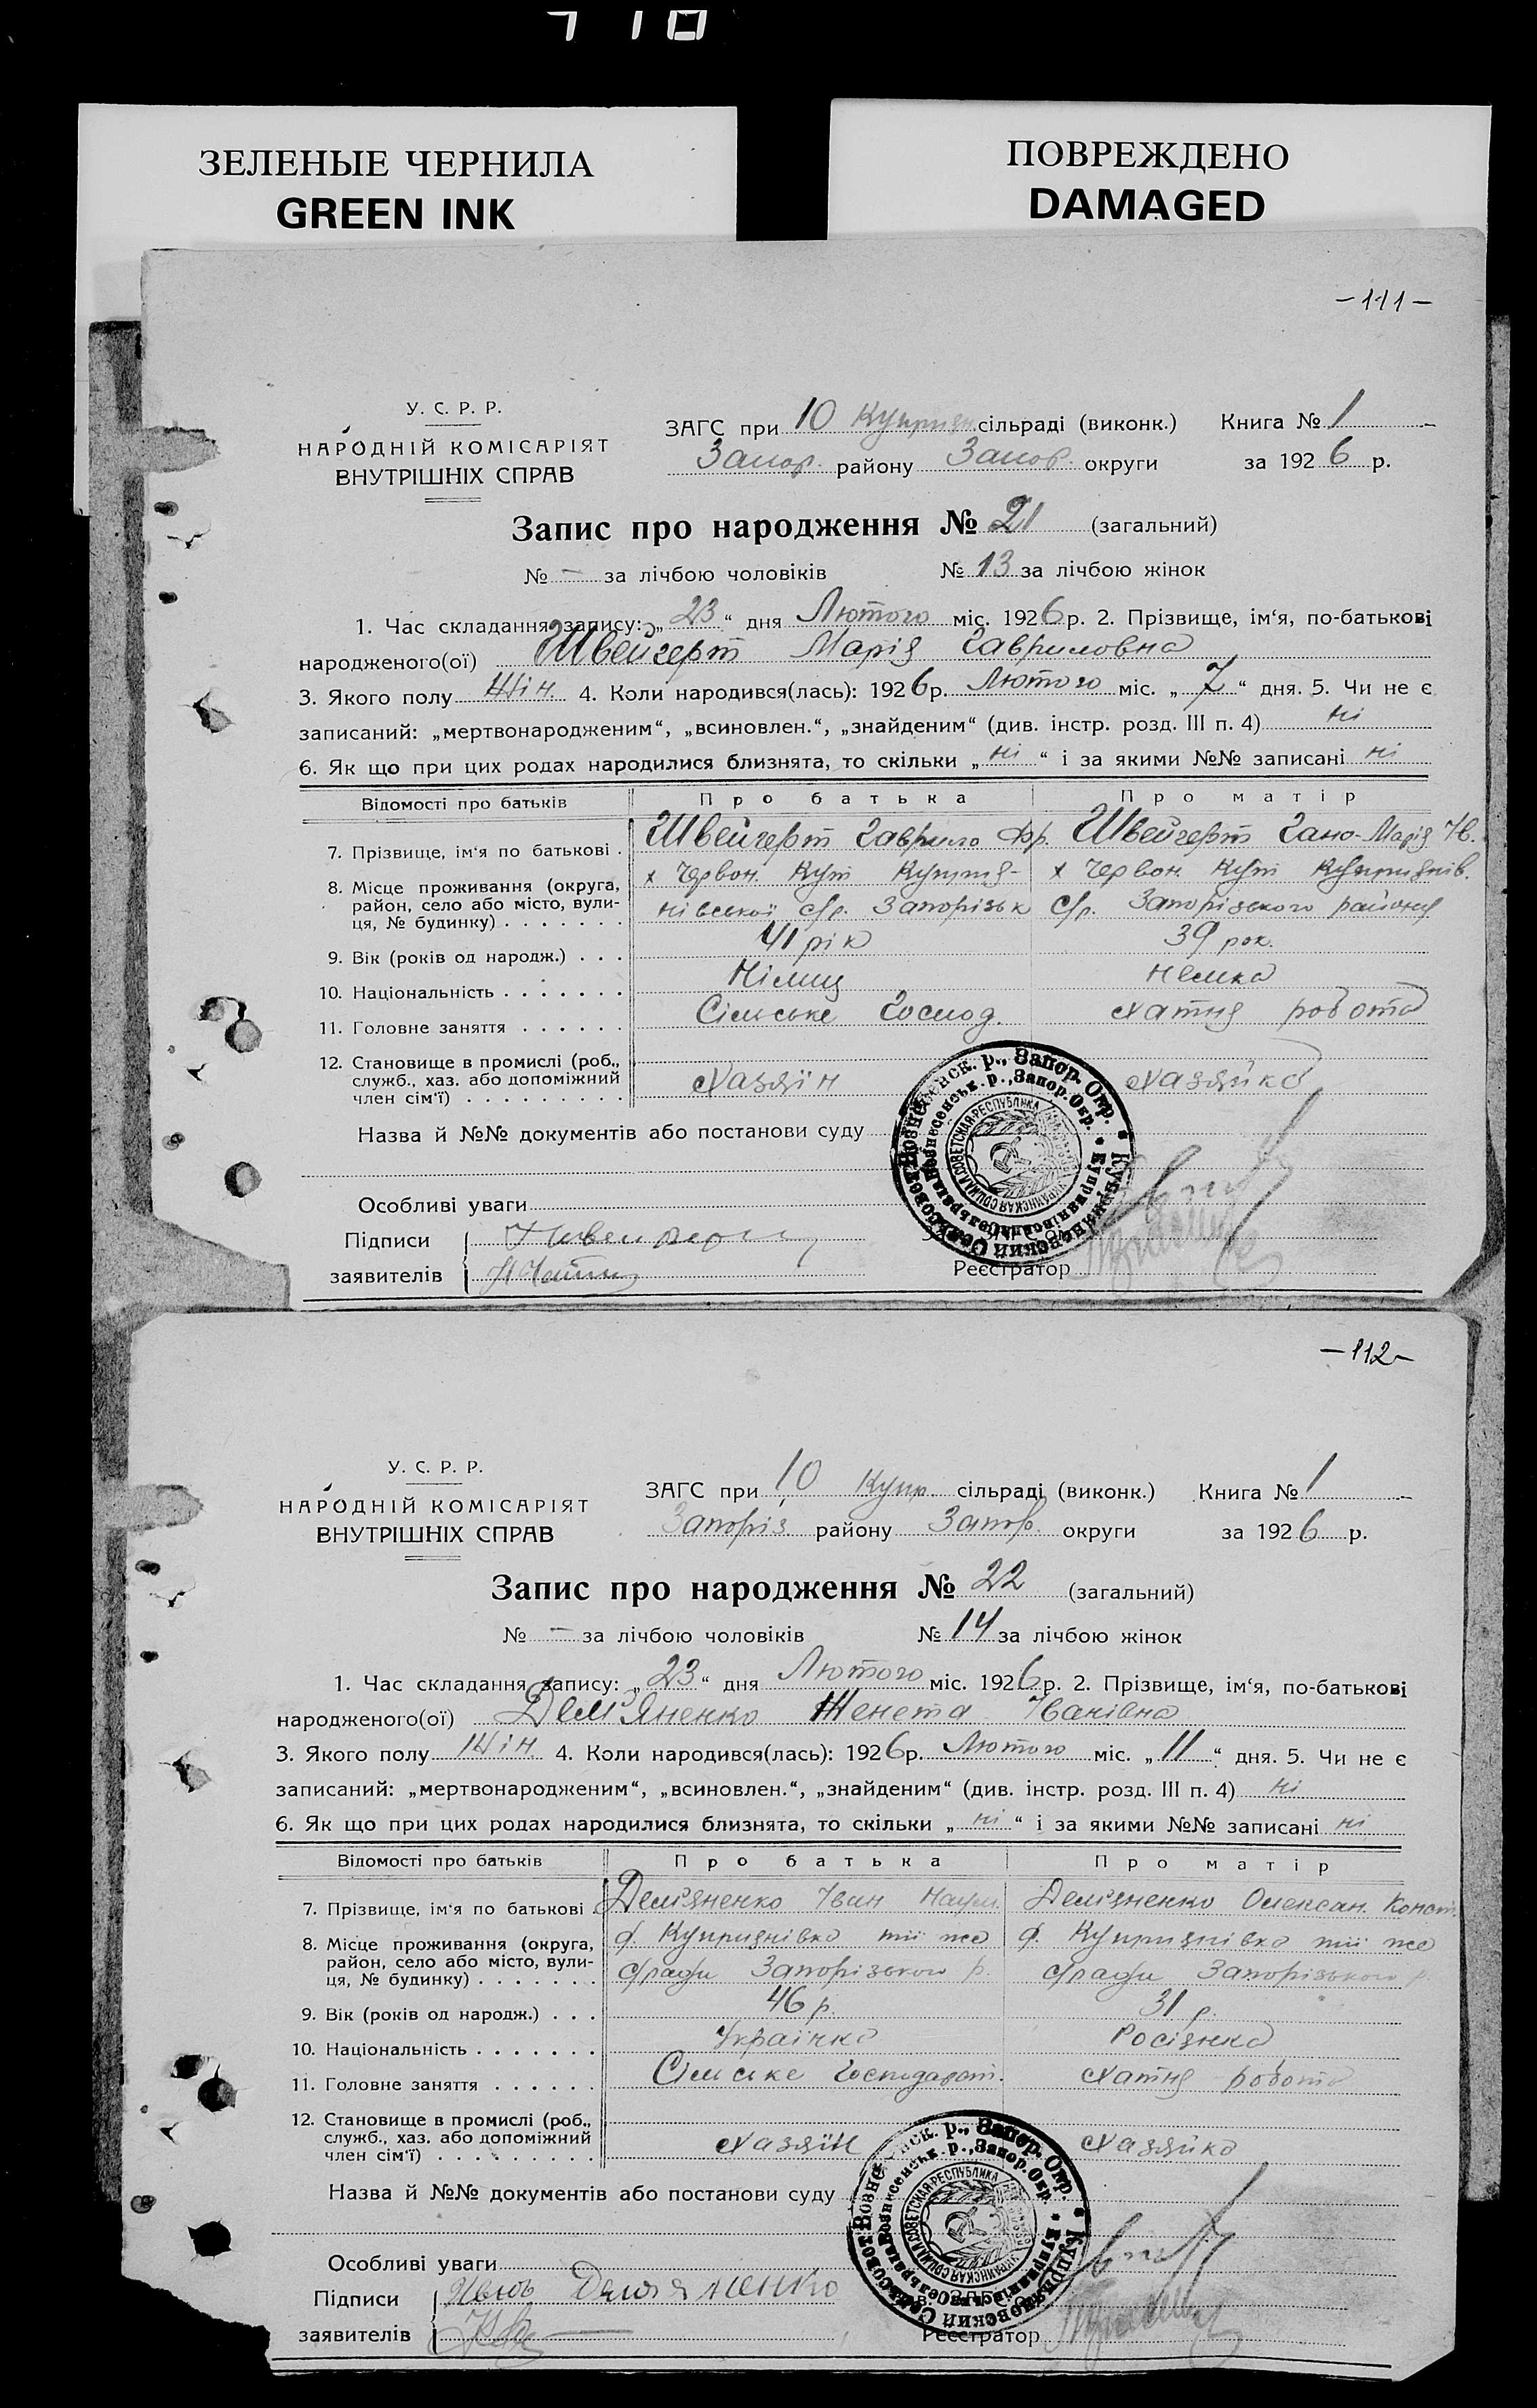 710
ЗЕЛЕНЫЕ ЧЕРНИЛА
GREEN INK
ПОВРЕЖДЕНО
DAMAGED
-111-
У. С. Р. Р.
НАРОДНІЙ КОМІСАРІЯТ
ВНУТРІШНІХ СПРАВ
ЗАГС при 10 Куприян сільраді (виконк.) Книга № 1
Запор. району Запор. округи за 1926 р.
Запис про народження № 21 (загальний)
№ – за лічбою чоловіків № 13 за лічбою жінок
1. Час складання запису: „23“ дня Лютого міс. 1926 р. 2. Прізвище, ім‘я, по-батькові
народженого(ої) Швейгерт Марія Гавриловна
3. Якого полу Жін. 4. Коли народився(лась): 1926 р. Лютого міс. „7“ дня. 5. Чи не є
записаний: „мертвонародженим“, „всиновлен.“, „знайденим“ (див. інстр. розд. III п. 4) ні
6. Як що при цих родах народилися близнята, то скільки „ні“ і за якими №№ записані ні
Відомості про батьків Про батька Про матір
7. Прізвище, ім‘я по батькові . Швейгерт Гаврило Фр. Швейгерт Гано-Марія Ів.
8. Місце проживання (округа, район, село або місто, вулиця, № будинку) х Червон. Кут Купріянівської с/р. Запорізьк х Червон. Кут Купріянів. с/р. Запорізького району
9. Вік (років од народж.) . . . 41 рік 39 рок.
10. Національність . . . . . . . Німець Немка
11. Головне заняття . . . . . . Сільське Господ. Хатня робота
12. Становище в промислі (роб., служб., хаз. або допоміжний член сім‘ї) Хазяїн Хазяйка
Назва й №№ документів або постанови суду
Особливі уваги
Підписи
заявителів
Реєстратор
-112-
У. С. Р. Р.
НАРОДНІЙ КОМІСАРІЯТ
ВНУТРІШНІХ СПРАВ
ЗАГС при 10 Купр. сільраді (виконк.) Книга № 1
Запоріз. району Запор. округи за 1926 р.
Запис про народження № 22 (загальний)
№ – за лічбою чоловіків № 14 за лічбою жінок
1. Час складання запису: „23“ дня Лютого міс. 1926 р. 2. Прізвище, ім‘я, по-батькові
народженого(ої) Дем'яненко Женета Іванівна
3. Якого полу Жін. 4. Коли народився(лась): 1926 р. Лютого міс. „11“ дня. 5. Чи не є
записаний: „мертвонародженим“, „всиновлен.“, „знайденим“ (див. інстр. розд. III п. 4) ні
6. Як що при цих родах народилися близнята, то скільки „ні“ і за якими №№ записані ні
Відомості про батьків Про батька Про матір
7. Прізвище, ім‘я по батькові . Дем'яненко Іван Наум. Дем'яненко Олексан. Конст.
8. Місце проживання (округа, район, село або місто, вулиця, № будинку) с. Купріянівка тії же с/ради Запорізького р. с. Купріянівка тії же с/ради Запорізького р.
9. Вік (років од народж.) . . . 46 р. 31 р.
10. Національність . . . . . . . Українка Росіянка
11. Головне заняття . . . . . . Сільське Господарст. Хатня робота
12. Становище в промислі (роб., служб., хаз. або допоміжний член сім‘ї) Хазяїн Хазяйка
Назва й №№ документів або постанови суду
Особливі уваги
Підписи Иван Демяненко
заявителів
Реєстратор